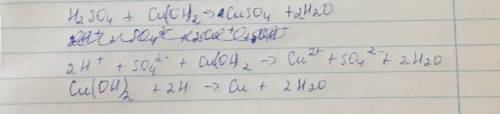 H₂SO₄ + Cu(OH)₂ → CuSO₄ + 2H2O
2H⁺ + SO₄²⁻ + Cu(OH)₂ → Cu²⁺ + SO₄²⁻ + 2H2O
Cu(OH)₂ + 2H → Cu + 2H2O